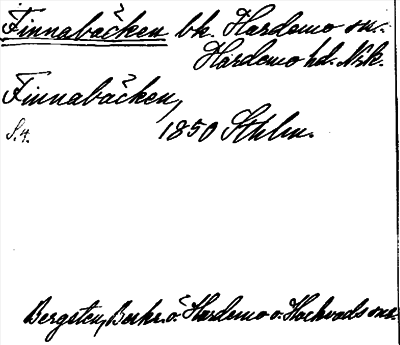 Finnabäcken bk. Hardemo sn.
Hardemo hd. Nrk.
Finnabäcken,
S. 4. 1850 Sthlm.
Bergsten, Beskr. ö. Hardemo o. Hackvads snr.